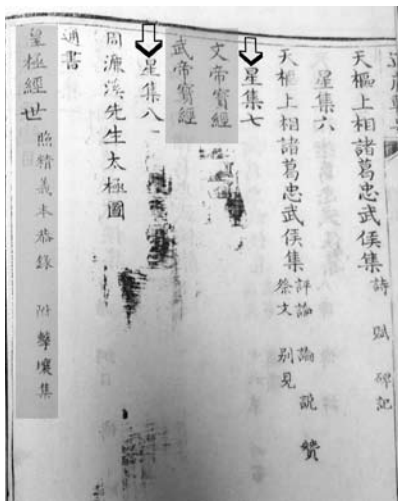 天樞上相諸葛忠武侯集 詩 賦 碑記
星集六
天樞上相諸葛忠武侯集 評論 論 說 贊
祭文 別見
星集七
文帝寶經
武帝寶經
星集八
周濂溪先生太極圖
通書
皇極經世 照精義本恭錄 附擊壤集